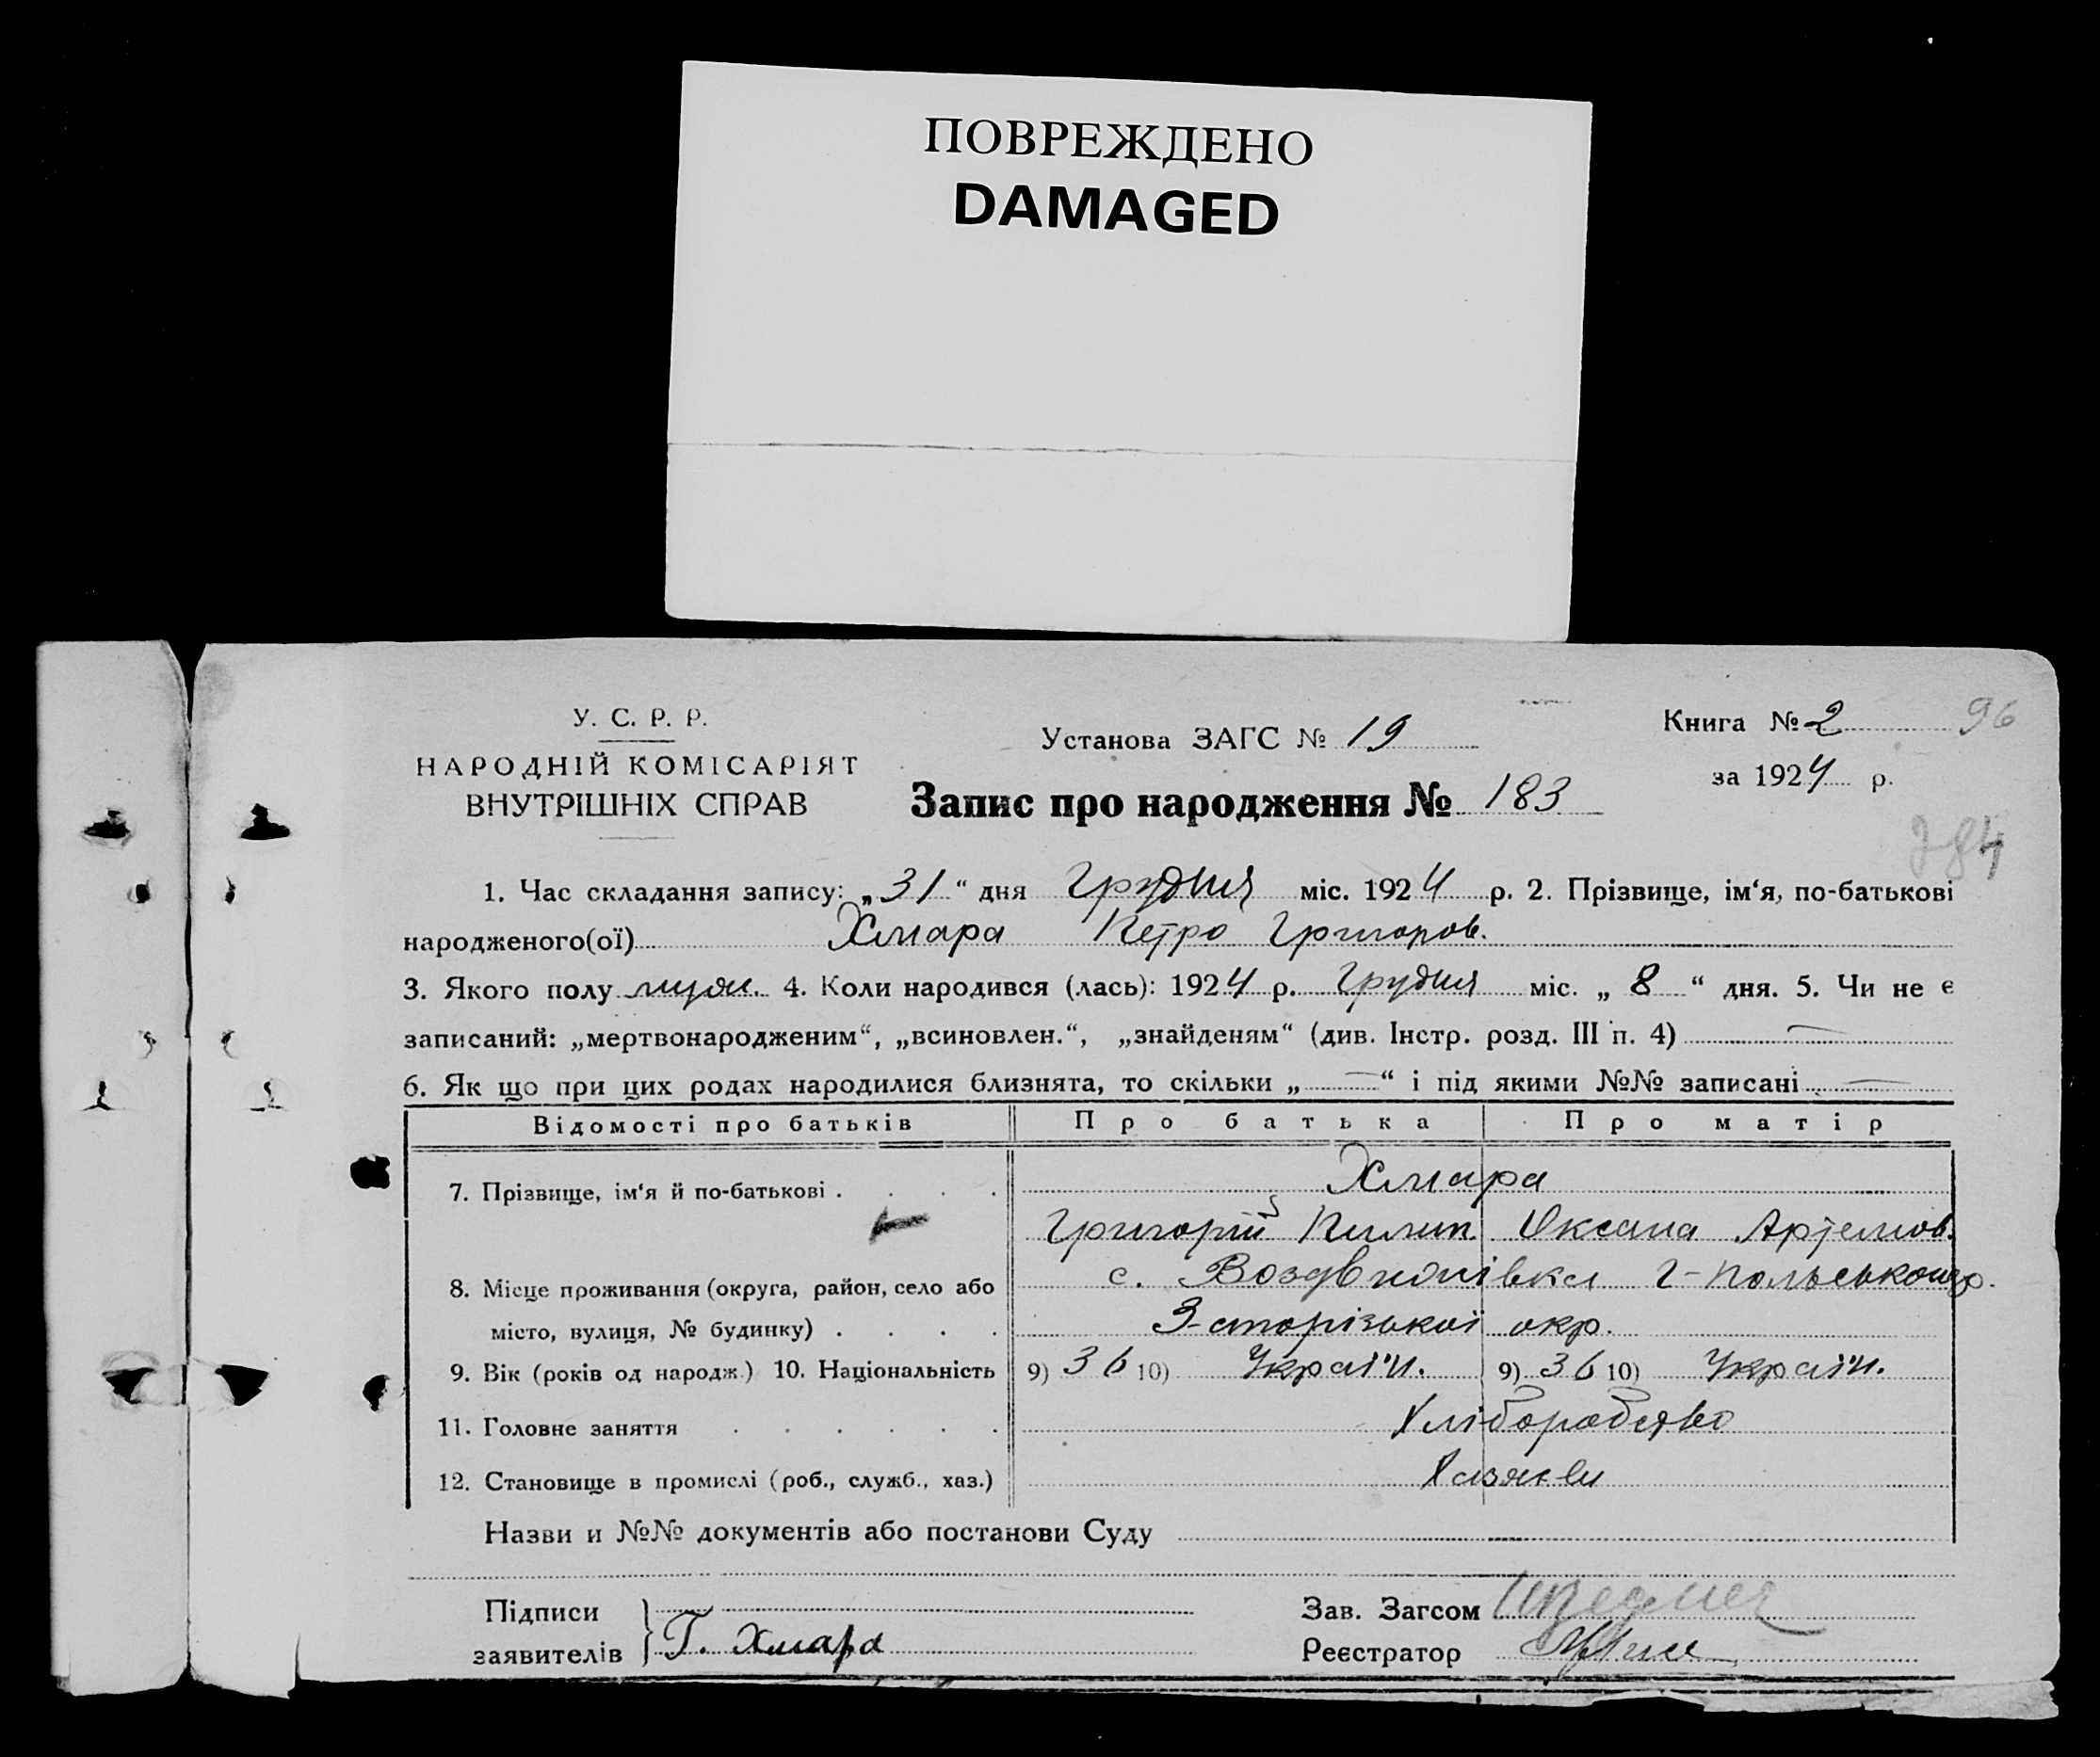 ПОВРЕЖДЕНО
DAMAGED
У. С. Р. Р.
НАРОДНІЙ КОМІСАРІЯТ
ВНУТРІШНІХ СПРАВ
Установа ЗАГС № 19
Книга № 2 96
за 1924 р.
Запис про народження № 183
284
1. Час складання запису: „31“ дня Грудня міс. 1924 р. 2. Прізвище, ім‘я, по-батькові
народженого(ої) Хмара Петро Григоров.
3. Якого полу муж. 4. Коли народився (лась): 1924 р. Грудня міс. „8“ дня. 5. Чи не є
записаний: „мертвонародженим“, „всиновлен.“, „знайденям“ (див. Інстр. розд. III п. 4) —
6. Як що при цих родах народилися близнята, то скільки „—“ і під якими №№ записані —
Відомості про батьків Про батька Про матір
7. Прізвище, ім‘я й по-батькові . . . . Хмара
Григорій Пилип. Оксана Артемов.
8. Місце проживання (округа, район, село або с. Воздвижівка Г-Польського р.
місто, вулиця, № будинку) . . . . З-аторізької окр.
9. Вік (років од народж.) 10. Національність 9) 36 10) Україн. 9) 36 10) Україн.
11. Головне заняття . . . . . . Хліборобство
12. Становище в промислі (роб., служб., хаз.) Хазяєви
Назви и №№ документів або постанови Суду
Підписи
заявителів } Г. Хмара
Зав. Загсом
Реєстратор